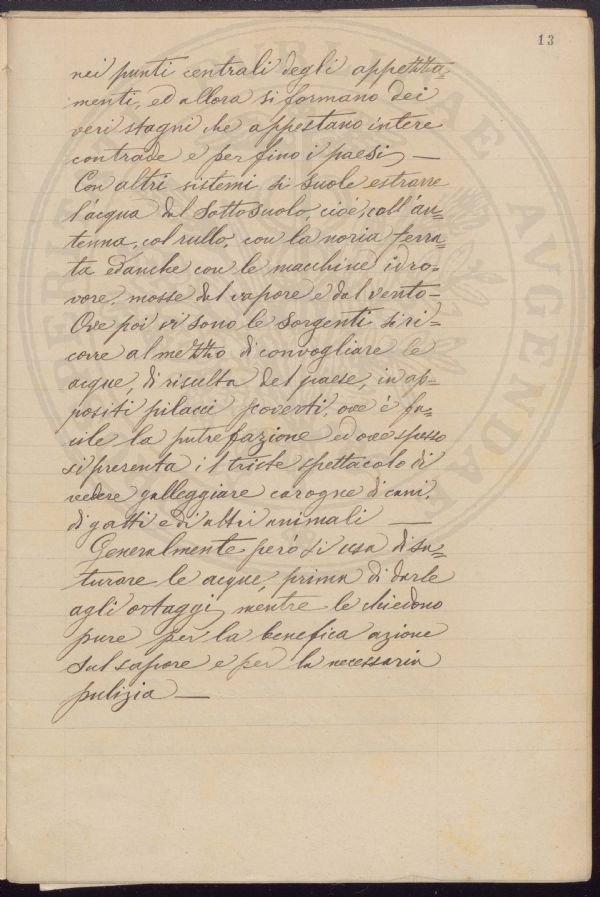 13
nei punti centrali degli appezza-
menti, ed allora si formano dei
veri stagni che appestano intere
contrade e per fino i paesi —
Con altri sistemi si suole estrarre
l'acqua dal sottosuolo, cioè, coll'an-
tenna, col rullo, con la noria ferra-
ta ed anche con le macchine idro-
vore, mosse dal vapore e dal vento —
Ove poi vi sono le sorgenti si ri-
corre al mezzo di convogliare le
acque, di risulta del paese, in ap-
positi pilacci scoverti, ove è fa-
cile la putrefazione ed ove spesso
si presenta il triste spettacolo di
vedere galleggiare carogne di cani,
di gatti e di altri animali —
Generalmente però si usa di sa-
turare le acque, prima di darle
agli ortaggi, mentre le chiedono
pure per la benefica azione
sul sapore e per la necessaria
pulizia —